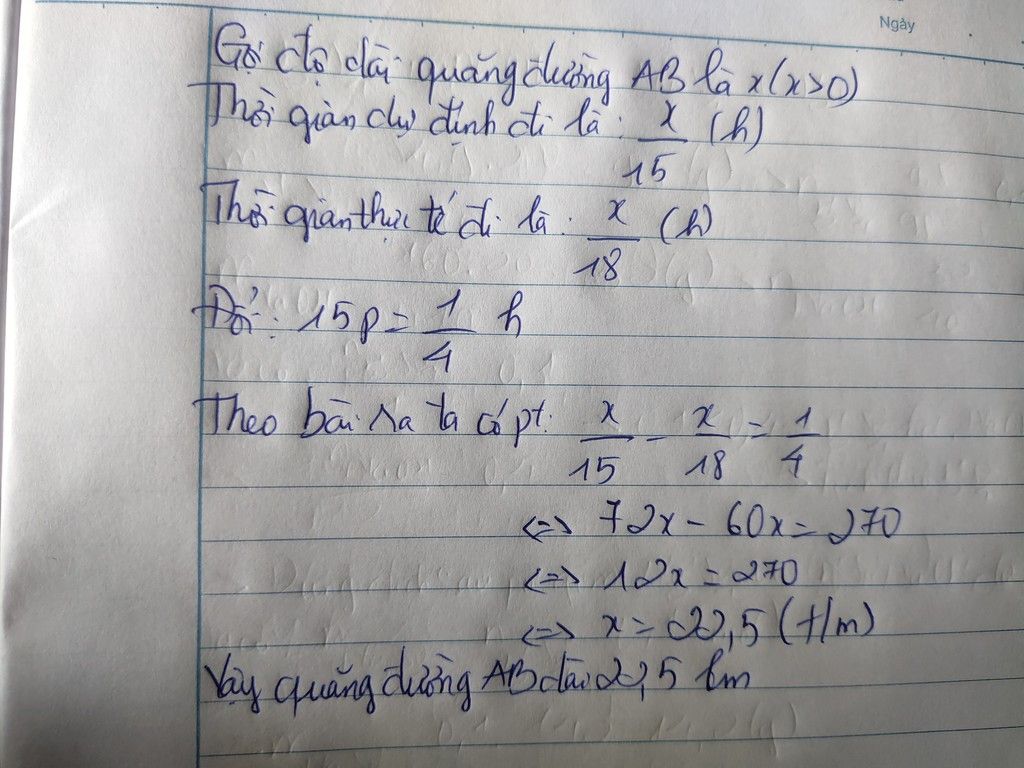 Ngày
Gọi độ dài quãng đường AB là x (x>0)
Thời gian dự định đi là: x/15 (h)
Thời gian thực tế đi là: x/18 (h)
Đổi: 15p = 1/4 h
Theo bài ra ta có pt: x/15 - x/18 = 1/4
<=> 72x - 60x = 270
<=> 12x = 270
<=> x = 22,5 (t/m)
Vậy quãng đường AB dài 22,5 km